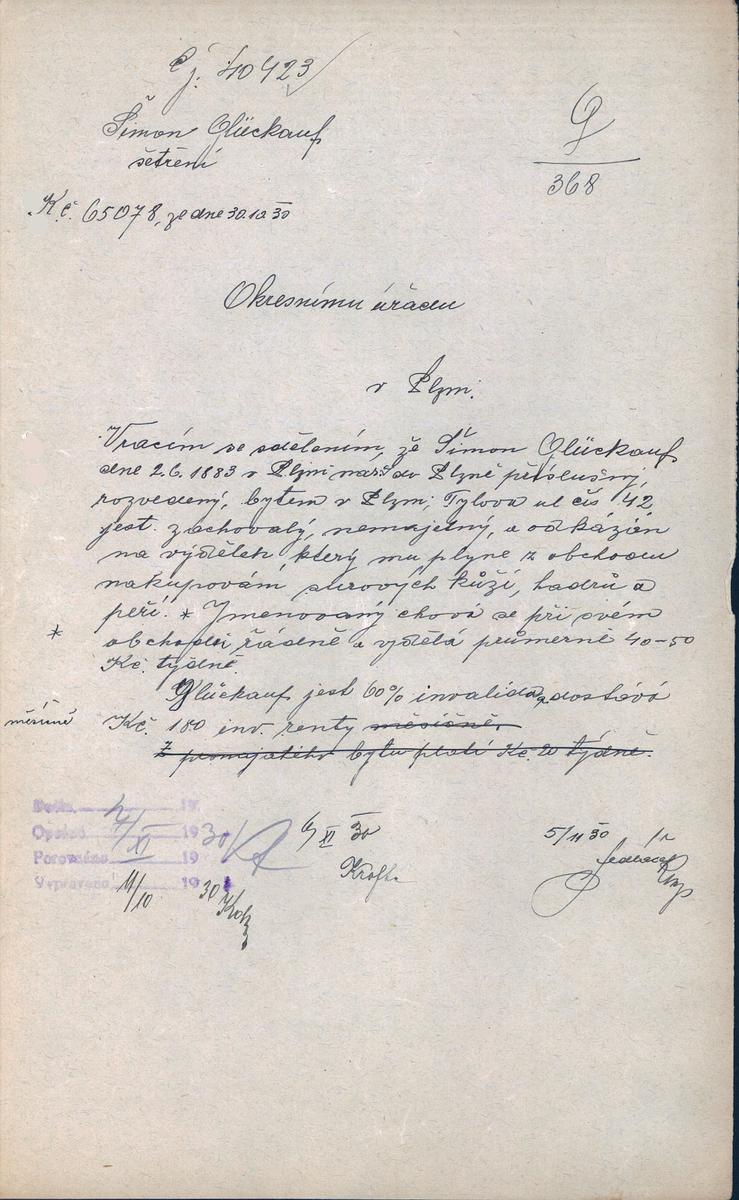 Čj. 40423
G
368
Šimon Glückauf
šetření
K č. 65078, ze dne 30.10 30
Okresnímu úřadu
v Plzni.
Vracím se sdělením, že Šimon Glückauf
dne 2.6. 1883 v Plzni nar. do Plzně příslušný,
rozvedený, bytem v Plzni, Tylova ul čís 42,
jest. zachovalý, nemajetný, a odkázán
na výdělek, který mu plyne z obchodu
nakupování surových kůží, hadrů a
peří. * Jmenovaný chová se při svém
*
obchodu řádně a vydělá průměrně 40-50
Kč. týdně.
Glückauf jest 60% invalida, dostává
měsíčně
Kč. 180 inv. renty měsíčně.
Z pronajatého bytu platí Kč. 20 týdně.
Došlo 19
Opsáno 7/XI 1930
Porovnáno 19
Vypraveno 11/10 1930
6/XI 30
5/11 30